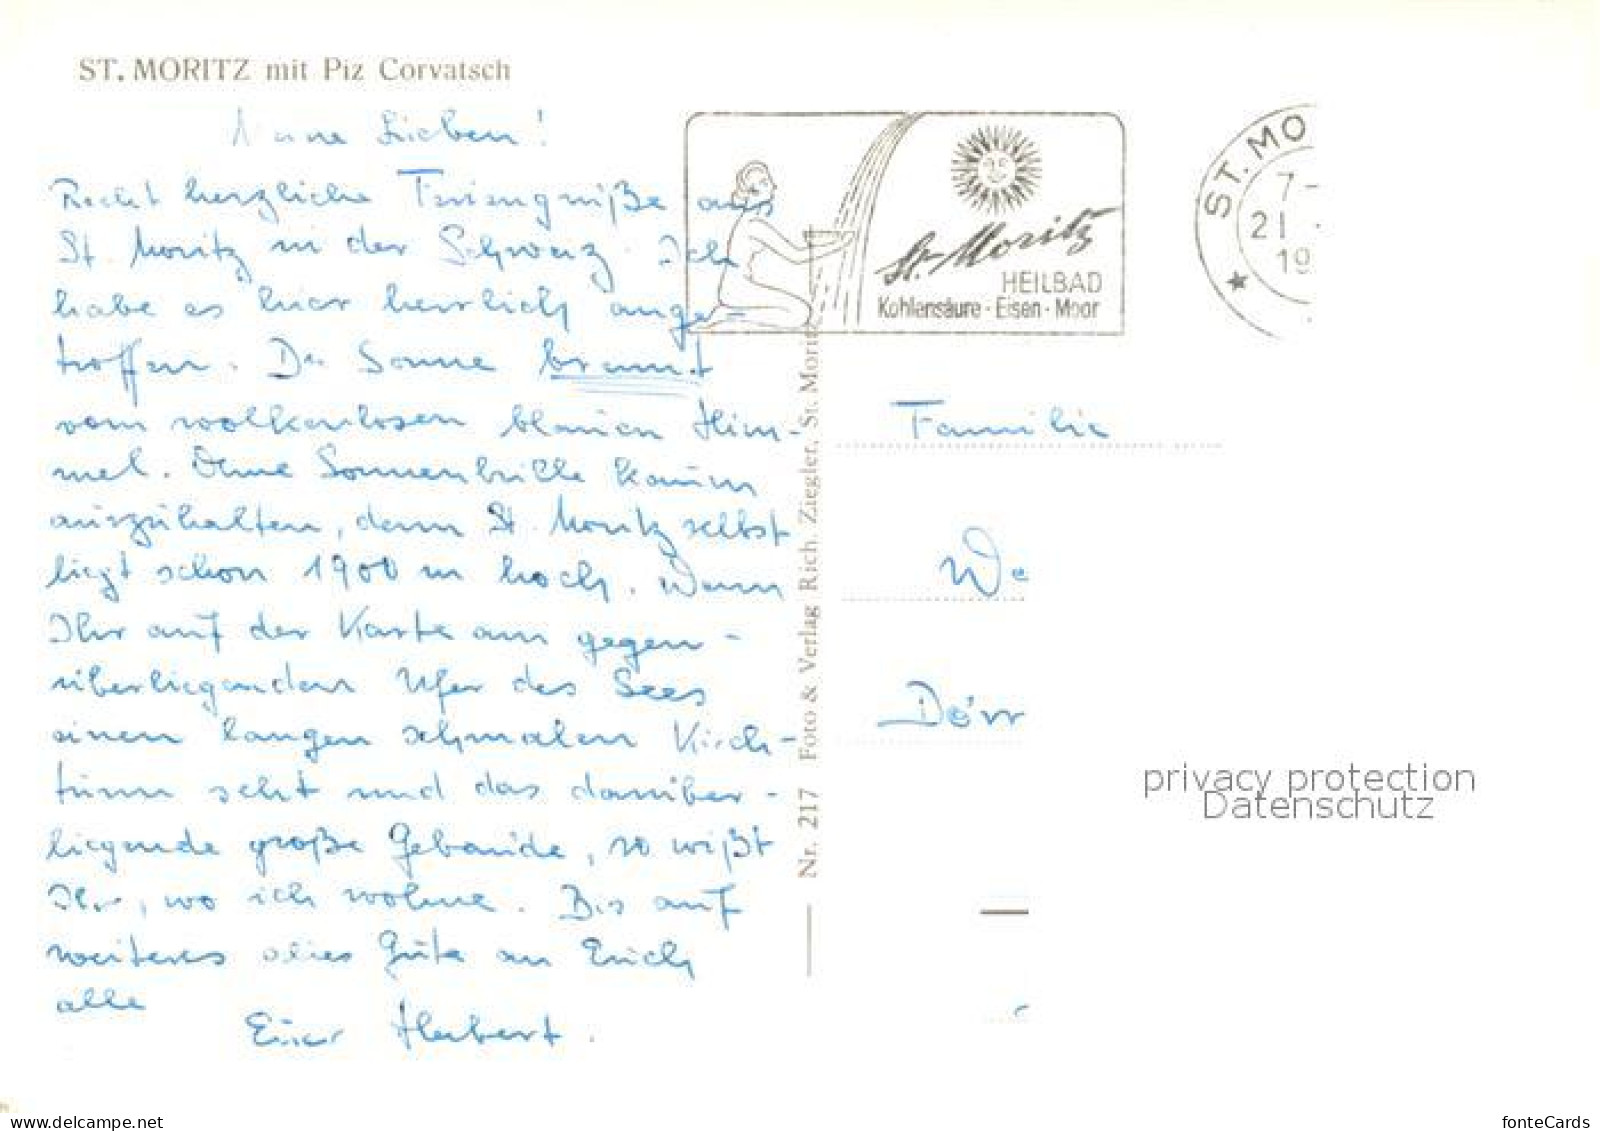 ST. MORITZ mit Piz Corvatsch
Lieben!
Recht herzliche Feriengrüße aus
St. Moritz in der Schweiz. Ich
habe es hier herrlich ange-
troffen. Die Sonne brennt
vom wolkenlosen blauen Him-
mel. Ohne Sonnenbrille kaum
auszuhalten, denn St. Moritz selbst
liegt schon 1900 m hoch. Wenn
Ihr auf der Karte am gegen-
überliegenden Ufer des Sees
einen langen schmalen Kirch-
turm seht und das darüber-
liegende große Gebäude, so wißt
Ihr, wo ich wohne. Bis auf
weiteres alles Gute an Euch
alle
Euer Herbert.
St. Moritz
HEILBAD
Kohlensäure · Eisen · Moor
ST. MO
7-
21
19
Familie
We
Dörr
Nr. 217 Foto & Verlag Rich. Ziegler, St. Moritz
privacy protection
Datenschutz
www.delcampe.net
fonteCards